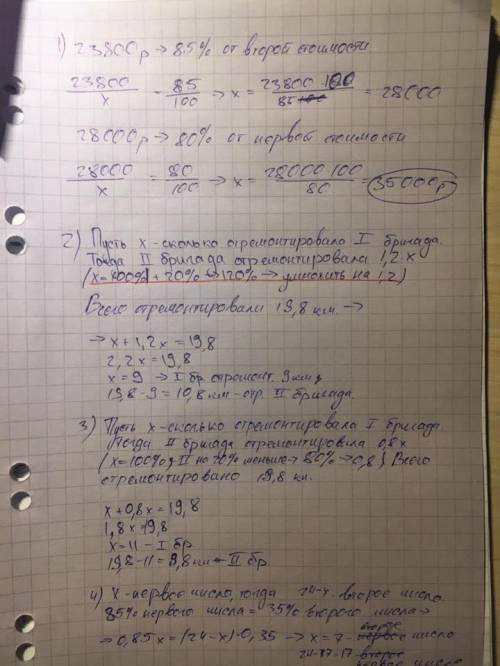 1) 23800р → 85% от второй стоимости
23800/x = 85/100 → x = 23800·100/85 = 28000
28000р → 80% от первой стоимости
28000/x = 80/100 → x = 28000·100/80 = 35000р
2) Пусть x - сколько отремонтировала I бригада.
Тогда II бригада отремонтировала 1,2x
(x=100% + 20% → 120% → умножить на 1,2)
Всего отремонтировали 19,8 км →
→ x + 1,2x = 19,8
2,2x = 19,8
x = 9 → I бр. отремонт. 9 км
19,8 - 9 = 10,8 км - отр. II бригада.
3) Пусть x - сколько отремонтировала I бригада
Тогда II бригада отремонтировала 0,8x
(x=100%, II на 20% меньше → 80% → 0,8) Всего
отремонтировано 19,8 км.
x + 0,8x = 19,8
1,8x = 19,8
x = 11 - I бр
19,8 - 11 = 8,8 км - II бр.
4) x - первое число, тогда 24-x второе число
85% первого числа = 35% второго числа →
→ 0,85x = (24-x)·0,35 → x = 7 - число
второе